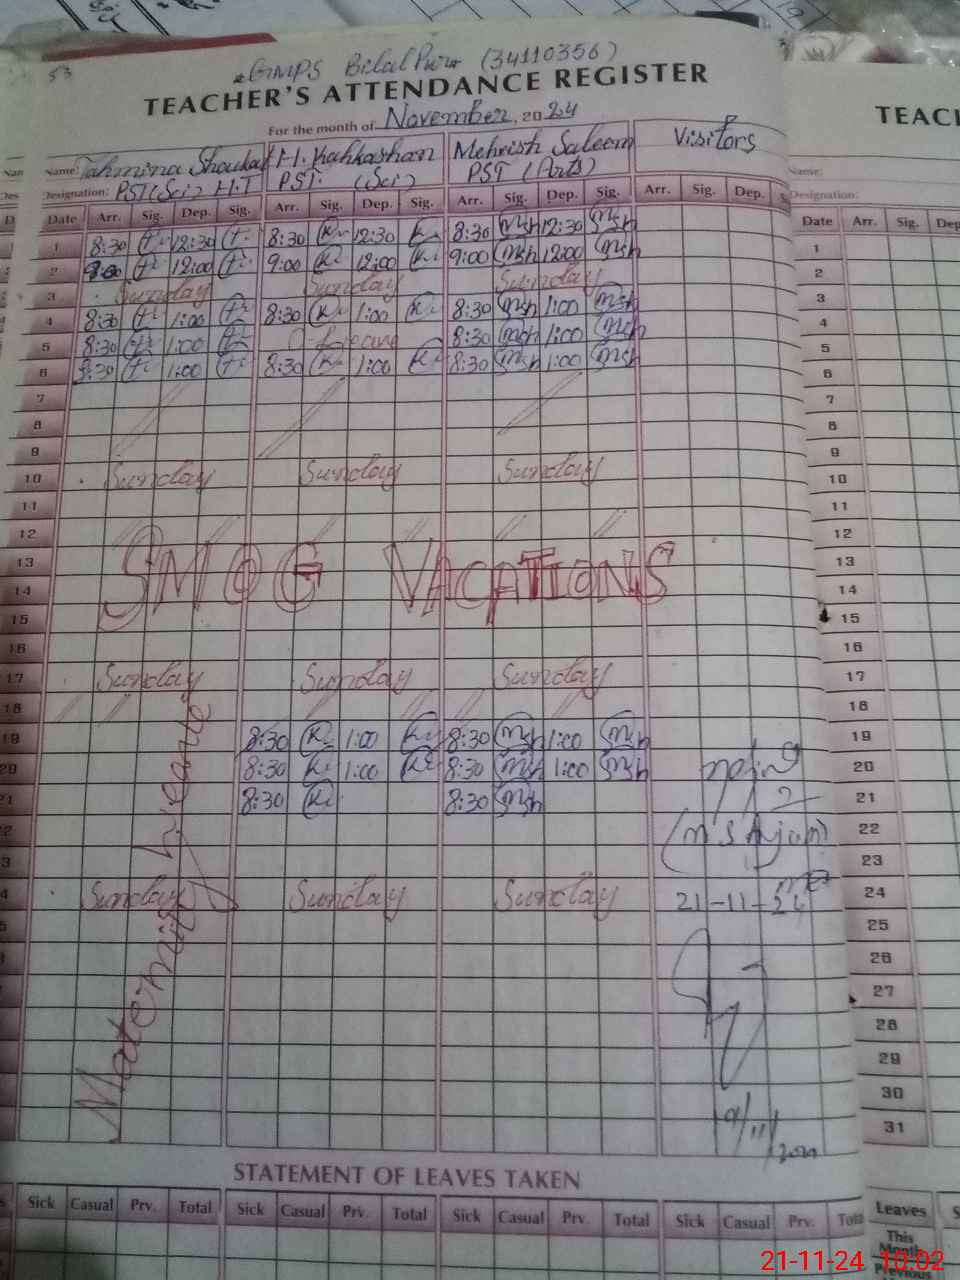 53
GMPS Bilal Pur (34110356)
TEACHER'S ATTENDANCE REGISTER
For the month of November, 2024
Name: Tahmina Shaukat H. Kahkashan Mehrish Saleem Visitors
Designation: PST (Sci) H.T PST. (Sci) PST (Arts)
Date Arr. Sig. Dep. Sig. Arr. Sig. Dep. Sig. Arr. Sig. Dep. Sig. Arr. Sig. Dep.
1 8:30 12:30 8:30 12:30 8:30 Msh 12:30 Msh
2 9:00 12:00 9:00 12:00 9:00 Msh 12:00 Msh
3 Sunday Sunday Sunday
4 8:30 1:00 8:30 1:00 8:30 Msh 1:00 Msh
5 8:30 1:00 8:30 Msh 1:00 Msh
6 8:30 1:00 8:30 1:00 8:30 Msh 1:00 Msh
7
8
9
10 Sunday Sunday Sunday
11
12
13 SMOG VACATIONS
14
15
16
17 Sunday Sunday Sunday
18
19 8:30 1:00 8:30 Msh 1:00 Msh
20 8:30 1:00 8:30 Msh 1:00 Msh
21 8:30 8:30 Msh
Sunday Sunday Sunday
21-11-24
Maternity leave
STATEMENT OF LEAVES TAKEN
Sick Casual Prv. Total Sick Casual Prv. Total Sick Casual Prv. Total Sick Casual Prv.
TEAC
Name:
Designation:
Date Arr. Sig. Dep
1
2
3
4
5
6
7
8
9
10
11
12
13
14
15
16
17
18
19
20
21
22
23
24
25
26
27
28
29
30
31
Leaves
This
Month
Previous
21-11-24 10:02